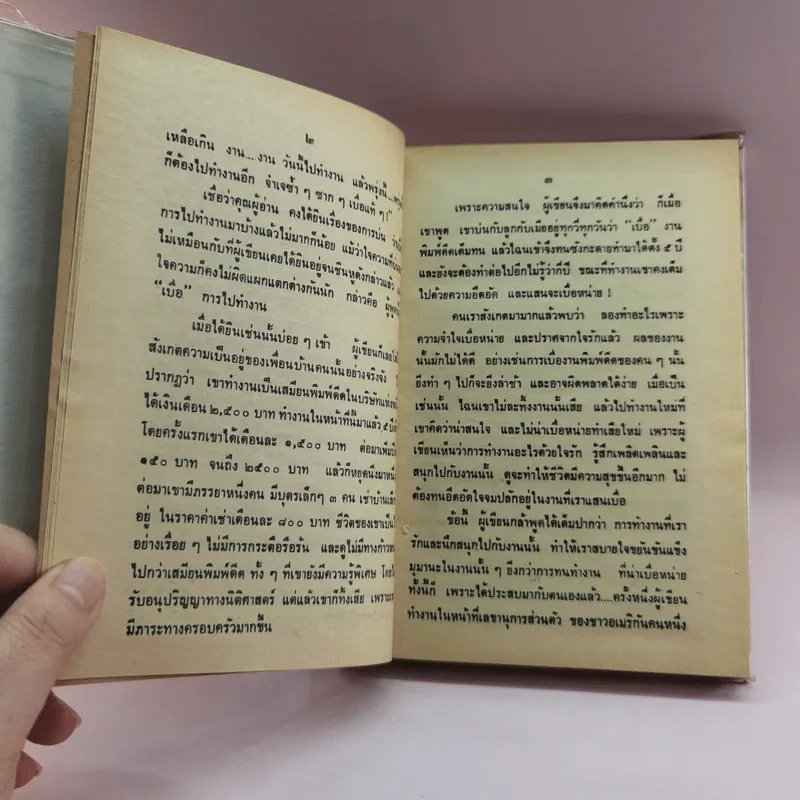 ๒
เหลือเกิน งาน....งาน วันนี้ไปทำงาน แล้วพรุ่งนี้....
ก็ต้องไปทำงานอีก จำเจซ้ำ ๆ ซาก ๆ เบื่อแท้ ๆ!"
เชื่อว่าคุณผู้อ่าน คงได้ยินเรื่องของการบ่น
การไปทำงานมาบ้างแล้วไม่มากก็น้อย แม้ว่าใจความที่
ไม่เหมือนกับที่ผู้เขียนเคยได้ยินอยู่จนชินหูดังกล่าวแล้ว
ใจความก็คงไม่ผิดแผกแตกต่างกันนัก กล่าวคือ
"เบื่อ" การไปทำงาน
เมื่อได้ยินเช่นนั้นบ่อย ๆ เข้า ผู้เขียนก็
สังเกตความเป็นอยู่ของเพื่อนบ้านคนนั้นอย่างจริงจัง
ปรากฏว่า เขาทำงานเป็นเสมียนพิมพ์ดีดในบริษัทแห่ง
ได้เงินเดือน ๒,๕๐๐ บาท ทำงานในหน้าที่นี้มาแล้ว ๕
โดยครั้งแรกเขาได้เดือนละ ๑,๕๐๐ บาท ต่อมาเพิ่ม
๑๕๐ บาท จนถึง ๒๕๐๐ บาท แล้วก็หยุดนิ่งมา
ต่อมาเขามีภรรยาหนึ่งคน มีบุตรเล็กๆ ๓ คน เช่าบ้าน
อยู่ ในราคาค่าเช่าเดือนละ ๘๐๐ บาท ชีวิตของเขา
อย่างเรื่อย ๆ ไม่มีการกระตือรือร้น และดูไม่มีทาง
ไปกว่าเสมียนพิมพ์ดีด ทั้ง ๆ ที่เขายังมีความรู้พิเศษ
รับอนุปริญญาทางนิติศาสตร์ แต่แล้วเขาก็ทิ้งเสีย
มีภาระทางครอบครัวมากขึ้น
๓
เพราะความสนใจ ผู้เขียนจึงมาคิดคำนึงว่า ก็เมื่อ
เขาพูด เขาบ่นกับลูกกับเมียอยู่ทุกวี่ทุกวันว่า "เบื่อ" งาน
พิมพ์ดีดเต็มทน แล้วไฉนเข้าจึงทนซังกะตายทำมาได้ตั้ง ๕ ปี
และยังจะต้องทำต่อไปอีกไม่รู้ว่ากี่ปี ขณะที่ทำงานเขาคงเต็ม
ไปด้วยความอึดอัด และแสนจะเบื่อหน่าย !
คนเราสังเกตมามากแล้วพบว่า ลองทำอะไรเพราะ
ความจำใจเบื่อหน่าย และปราศจากใจรักแล้ว ผลของงาน
นั้นมักไม่ได้ดี อย่างเช่นการเบื่องานพิมพ์ดีดของคน ๆ นั้น
ยิ่งทำ ๆ ไปก็จะยิ่งล่าช้า และอาจผิดพลาดได้ง่าย เมื่อเป็น
เช่นนั้น ไฉนเขาไม่ละทิ้งงานนั้นเสีย แล้วไปทำงานใหม่ที่
เขาคิดว่าน่าสนใจ และไม่น่าเบื่อหน่ายทำเสียใหม่ เพราะผู้
เขียนเห็นว่าการทำงานอะไรด้วยใจรัก รู้สึกเพลิดเพลินและ
สนุกไปกับงานนั้น ดูจะทำให้ชีวิตมีความสุขขึ้นอีกมาก ไม่
ต้องทนอึดอัดใจจมปลักอยู่ในงานที่เราแสนเบื่อ
ข้อนี้ ผู้เขียนกล้าพูดได้เต็มปากว่า การทำงานที่เรา
รักและนึกสนุกไปกับงานนั้น ทำให้เราสบายใจขยันขันแข็ง
มุมานะในงานนั้น ๆ ยิ่งกว่าการทนทำงาน ที่น่าเบื่อหน่าย
ทั้งนี้ก็ เพราะได้ประสบมากับตนเองแล้ว....ครั้งหนึ่งผู้เขียน
ทำงานในหน้าที่เลขานุการส่วนตัว ของชาวอเมริกันคนหนึ่ง